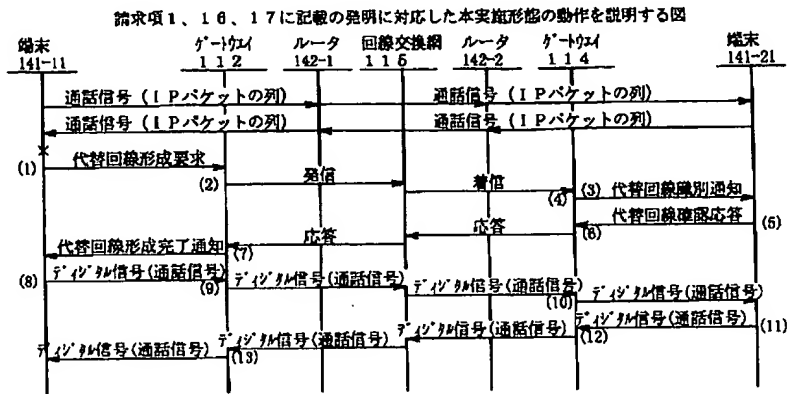 請求項1、16、17に記載の発明に対応した本実施形態の動作を説明する図
端末 ゲートウエイ ルータ 回線交換網 ルータ ゲートウエイ 端末
141-11 112 142-1 115 142-2 114 141-21
通話信号(IPパケットの列) 通話信号(IPパケットの列)
通話信号(IPパケットの列) 通話信号(IPパケットの列)
(1) 代替回線形成要求
(2) 発信 着信 (4) (3) 代替回線識別通知
代替回線確認応答 (5)
応答 (6)
代替回線形成完了通知 (7) 応答
(8) ディジタル信号(通話信号) (9) ディジタル信号(通話信号) ディジタル信号(通話信号) (10) ディジタル信号(通話信号)
ディジタル信号(通話信号) (13) ディジタル信号(通話信号) ディジタル信号(通話信号) (12) ディジタル信号(通話信号) (11)